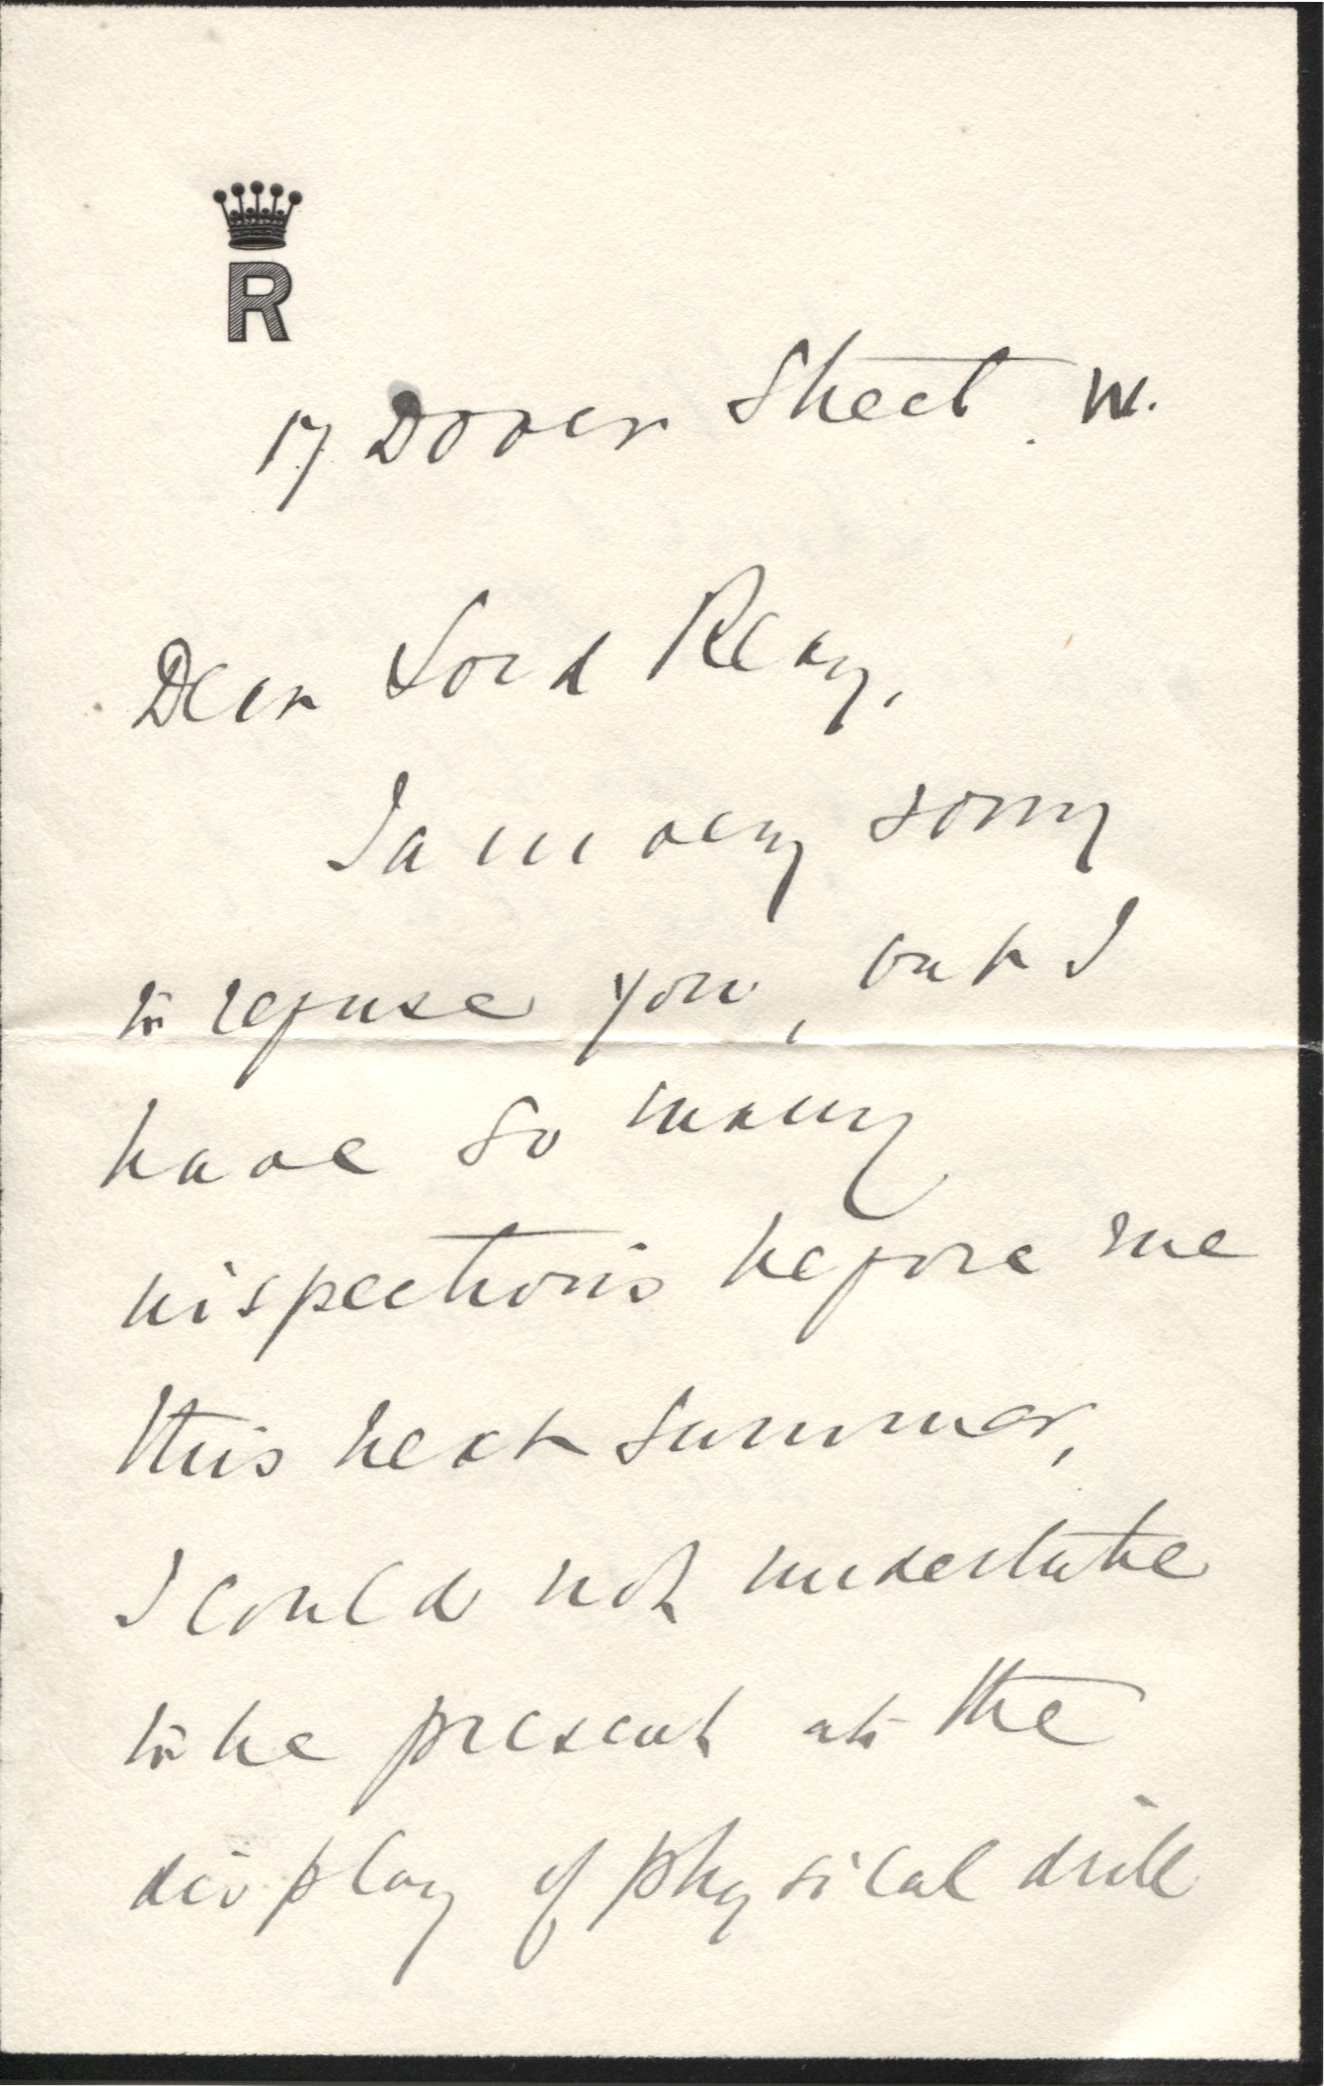 R
17 Dover Street. W.
Dear Lord Reay,
I am very sorry
to refuse you, but I
have so many
inspections before me
this next summer,
I could not undertake
to be present at the
display of physical drill